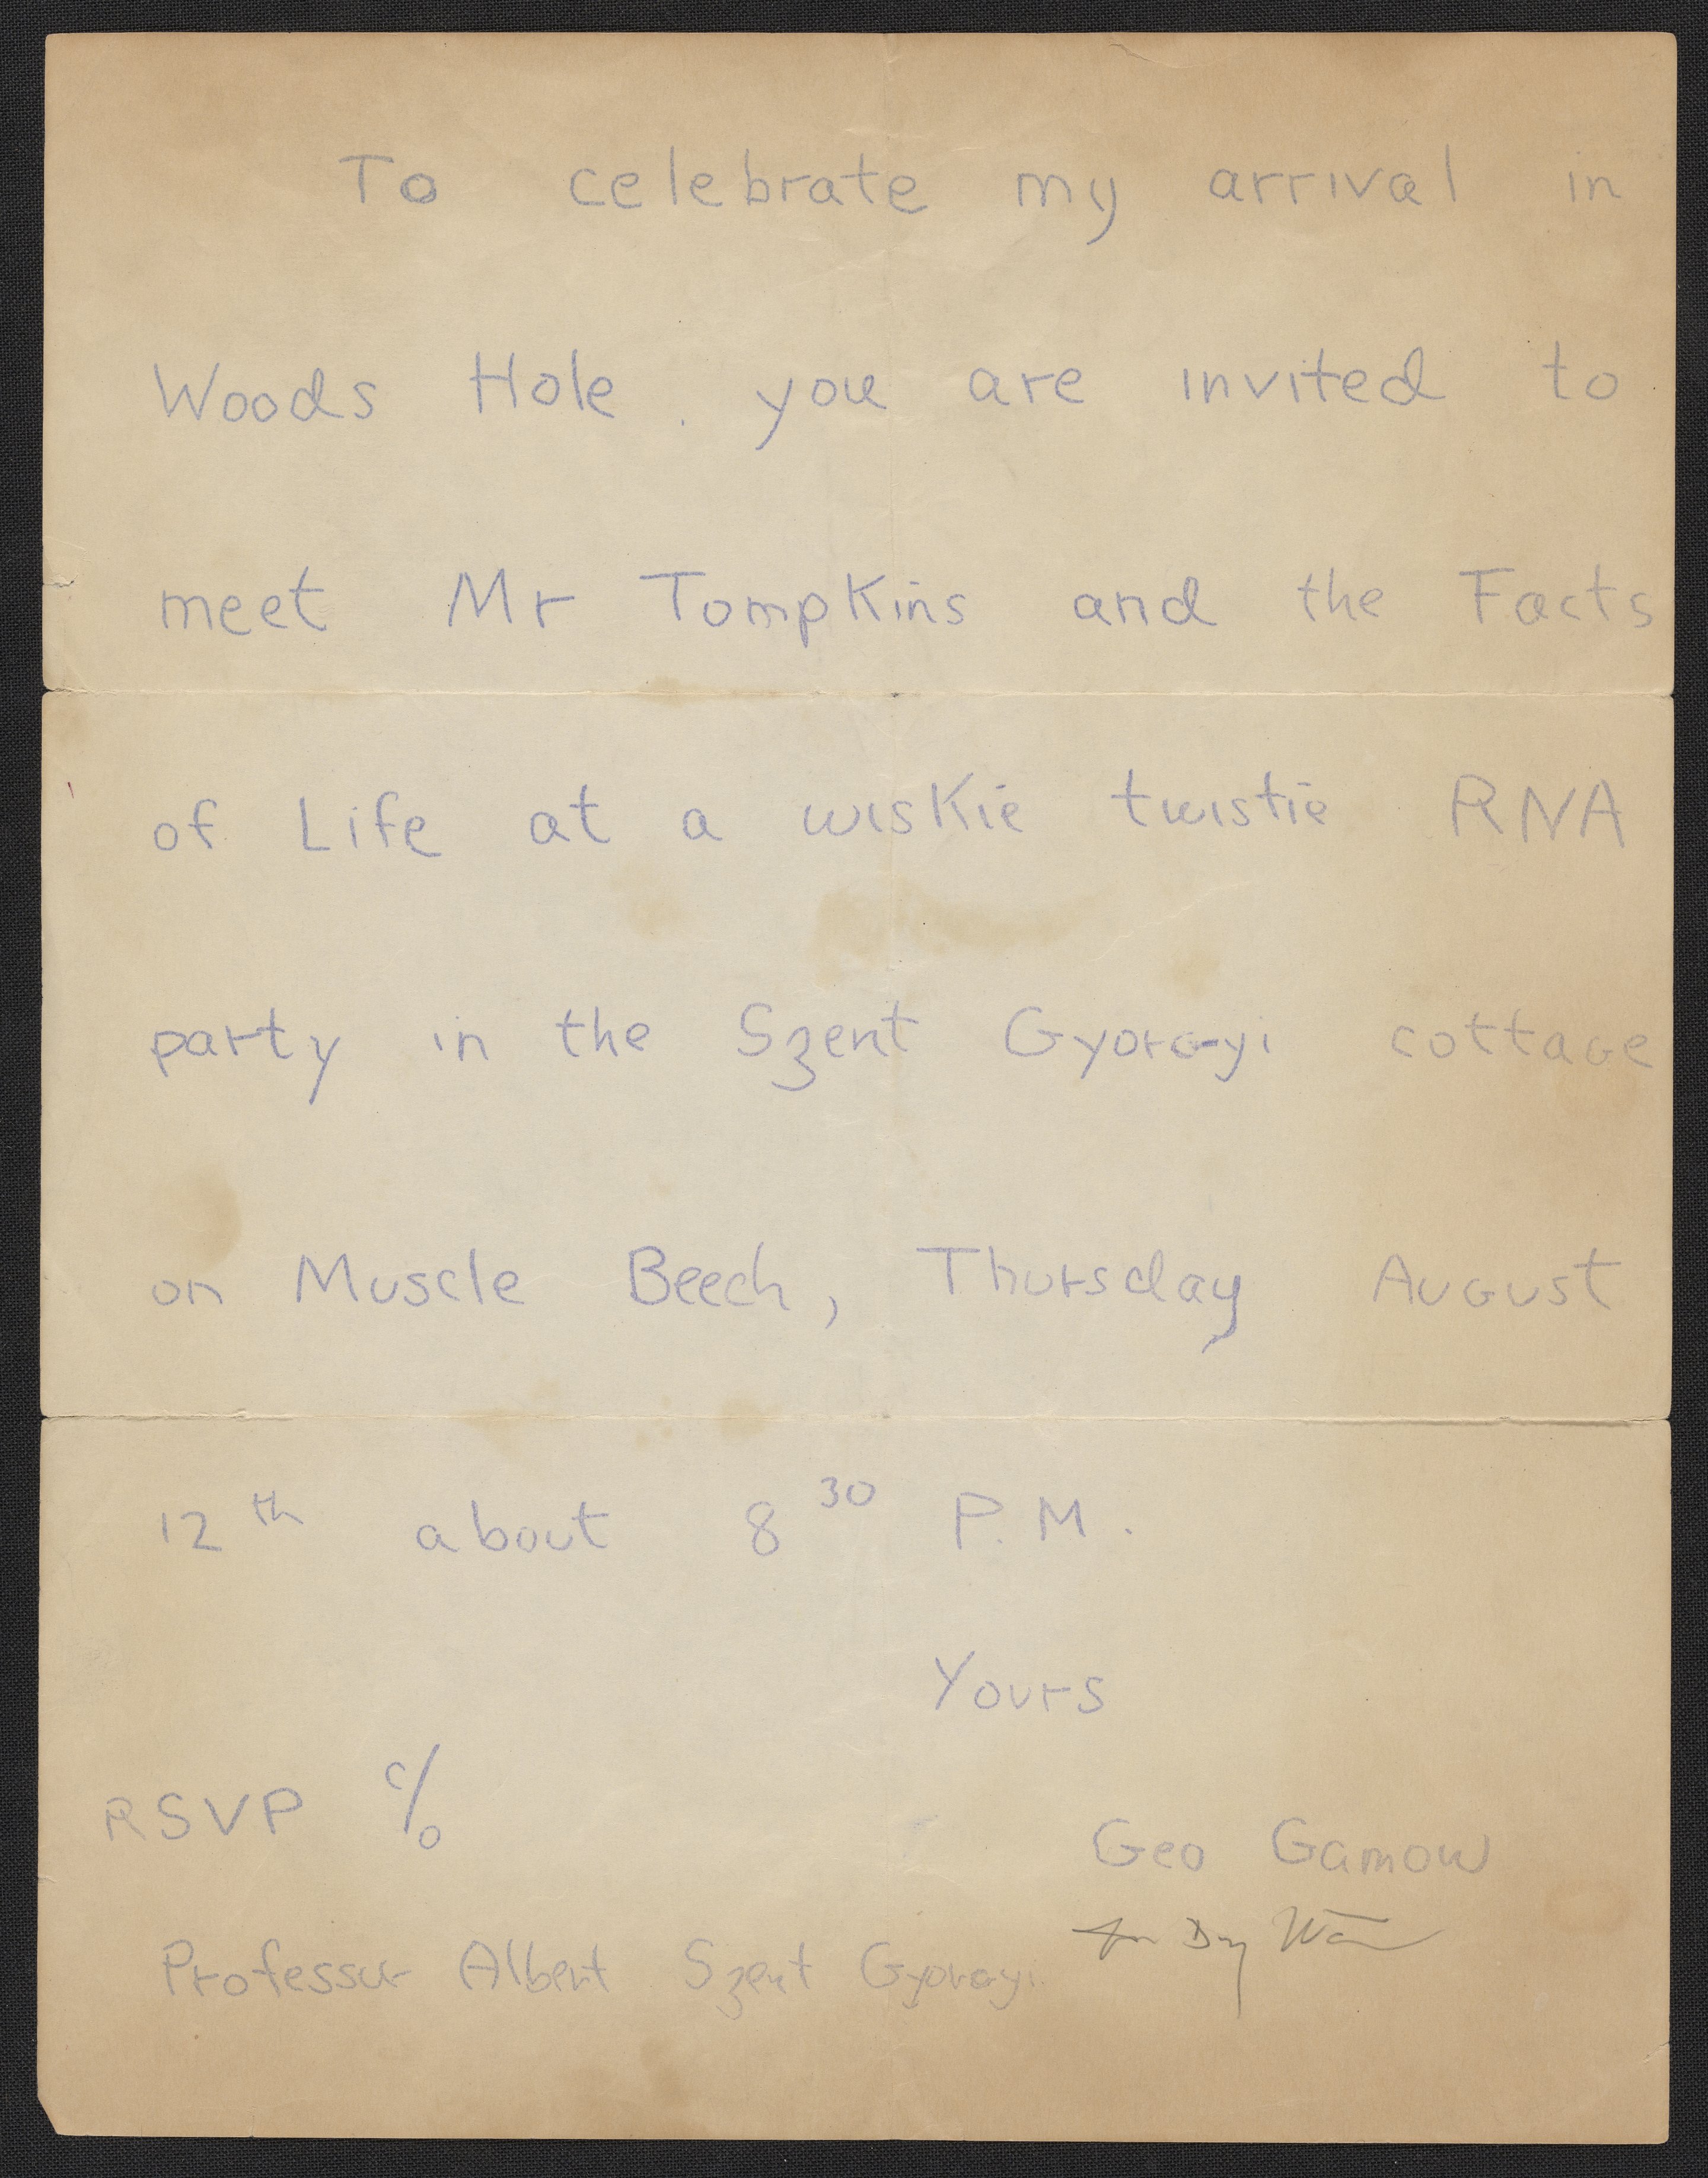 To celebrate my arrival in
Woods Hole . you are invited to
meet Mr Tompkins and the Facts
of Life at a wiskie twistie RNA
party in the Szent Gyorgyi cottage
on Muscle Beech, Thursday August
12th about 8 30 P.M.
Yours
RSVP c/o
Geo Gamow
Professur Albert Szent Gyorgyi